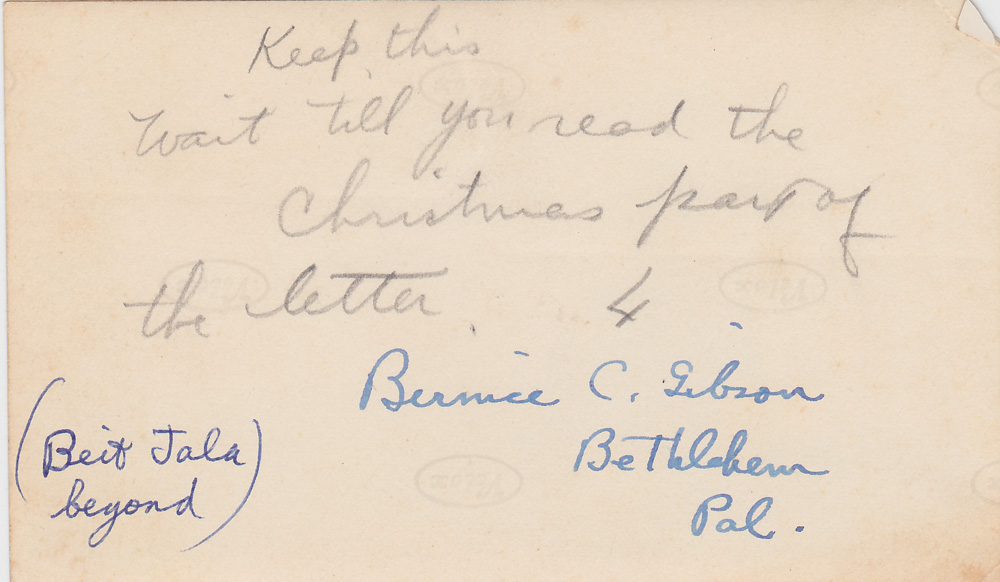 Keep this
Wait till you read the
Christmas part of
the letter. 4
Bernice C. Gibson
Bethlehem
Pal.
(Beit Jala
beyond)
Velox
Velox
Velox
Velox